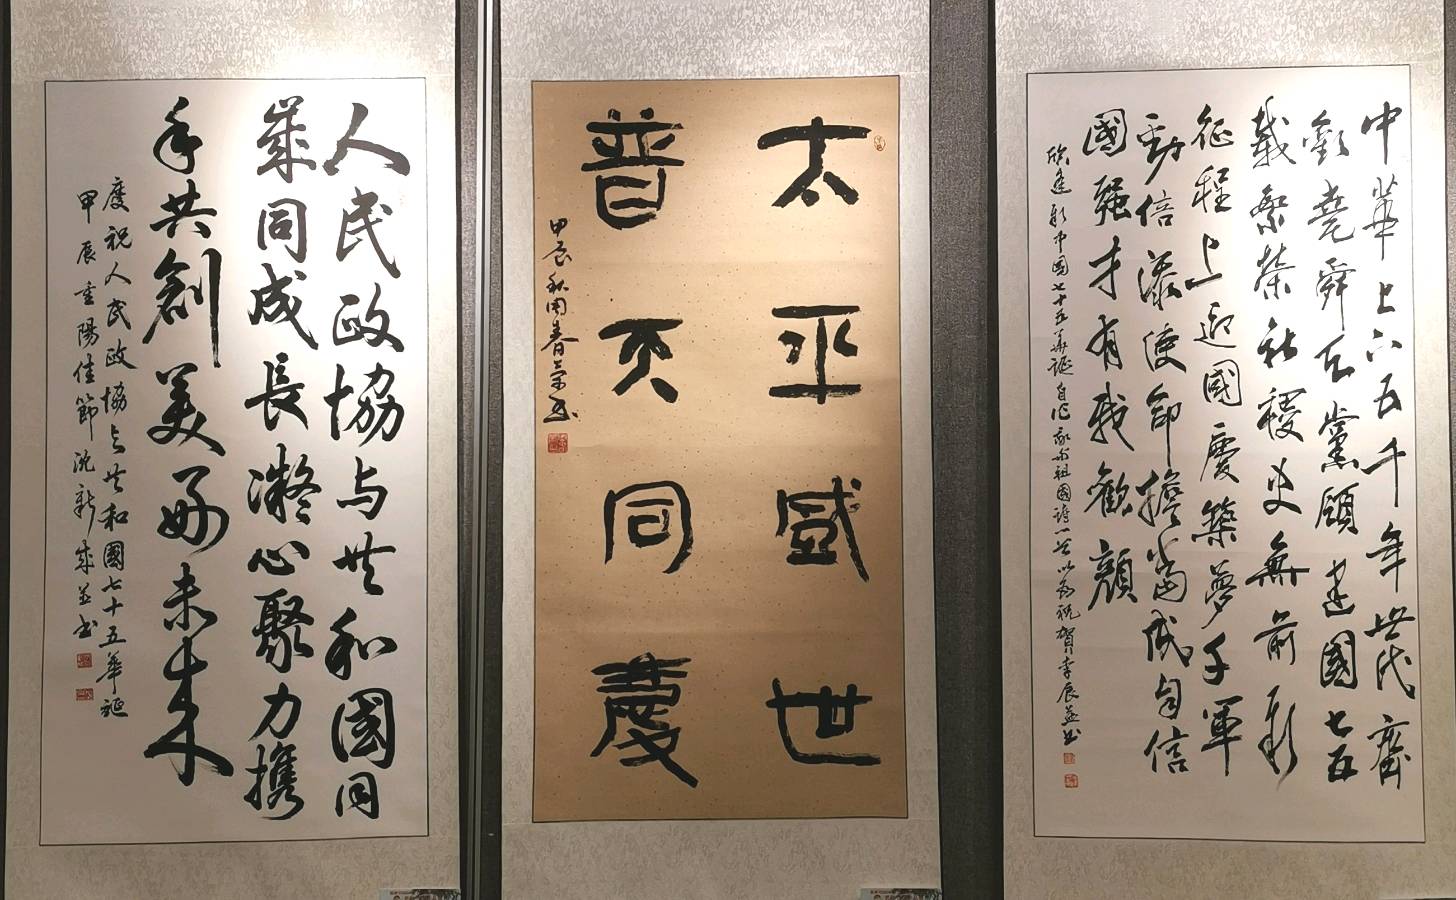 人民政協与共和國同
歲同成長凝心聚力攜
手共創美好未來
慶祝人民政協与共和國七十五華誕
甲辰重陽佳節沈新歲並书
太平盛世
普天同慶
甲辰秋周春书
中華上下五千年世代齊
歡堯舜天黨領建國七五
載繁榮社稷史無前新
征程上迎國慶築夢千軍
勁倍添使命擔當成自信
國强才有我歡顏
欣逢新中國七十五華誕自作祖國詩一首以为祝賀李辰並书